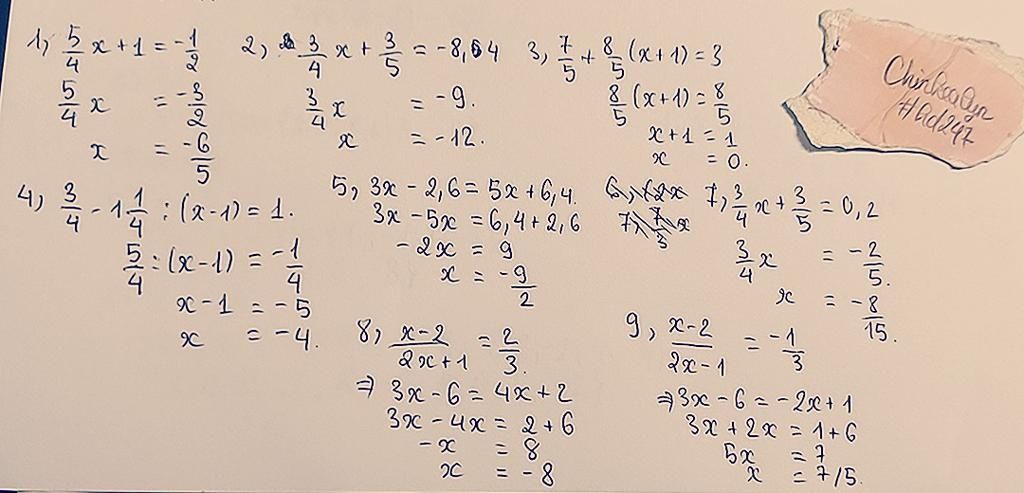 1, 5/4 x + 1 = -1/2
5/4 x = -3/2
x = -6/5
2, 3/4 x + 3/5 = -8,64
3/4 x = -9.
x = -12.
3, 7/5 + 8/5 (x+1) = 3
8/5 (x+1) = 8/5
x+1 = 1
x = 0.
4, 3/4 - 1 1/4 : (x-1) = 1.
5/4 : (x-1) = -1/4
x-1 = -5
x = -4.
5, 3x - 2,6 = 5x + 6,4.
3x - 5x = 6,4 + 2,6
-2x = 9
x = -9/2
7, 3/4 x + 3/5 = 0,2
3/4 x = -2/5.
x = -8/15.
8, x-2/2x+1 = 2/3.
⇒ 3x - 6 = 4x + 2
3x - 4x = 2 + 6
-x = 8
x = -8
9, x-2/2x-1 = -1/3
⇒ 3x - 6 = -2x + 1
3x + 2x = 1 + 6
5x = 7
x = 7/5.